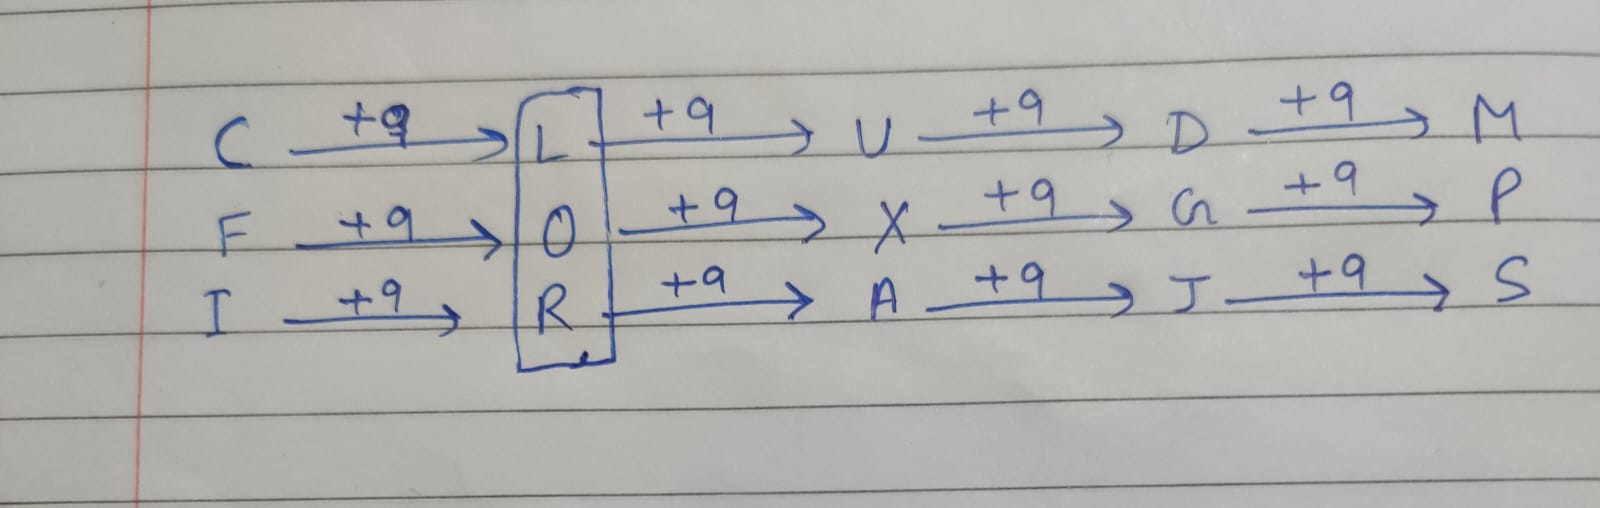 C +9 → L +9 → U +9 → D +9 → M
F +9 → O +9 → X +9 → G +9 → P
I +9 → R +9 → A +9 → J +9 → S